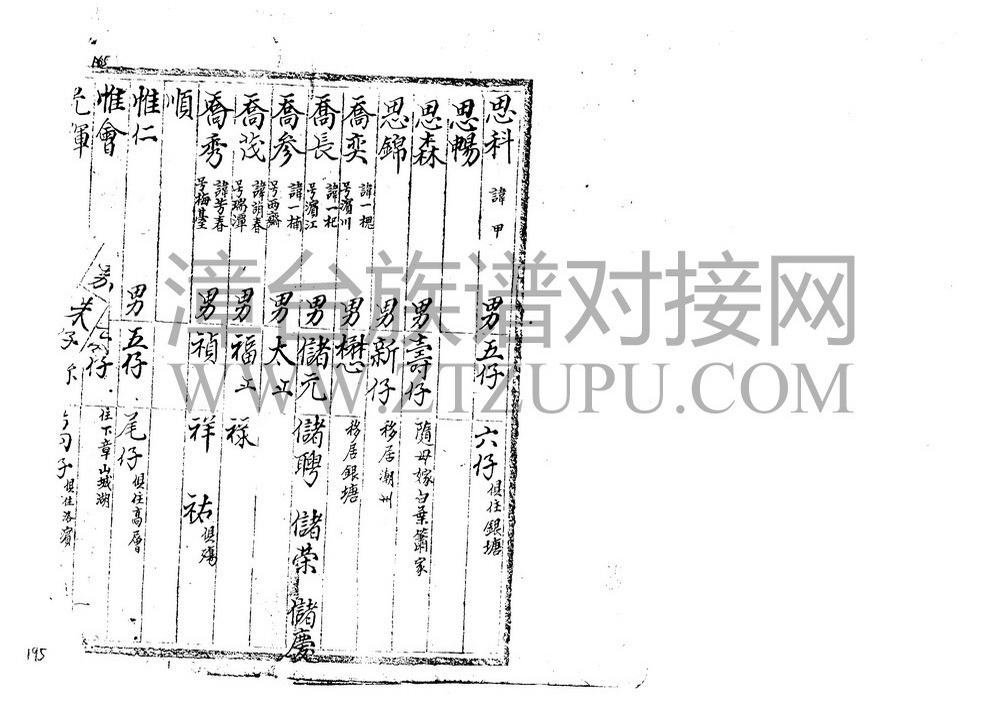 思科 諱甲 男五仔 六仔 俱住銀塘
思暢
思森 男壽仔 隨母嫁白葉蕭家
思錦 男新仔 移居潮州
喬奕 諱一槐 号濱川 男懋 移居銀塘
喬長 諱一杞 号濱江 男儲元 儲聘 儲荣 儲慶
喬參 諱一楠 号西齋 男太
喬茂 諱萌春 号瑞潭 男福 禄
喬秀 諱芳春 号梅臺 男禎 祥 祐 俱殤
順
惟仁 男五仔 尾仔 俱住高層
惟會 男 仔 住下章山城湖
輝 俱住洛濱
195
195
漳台族谱对接网
WWW.ZTZUPU.COM